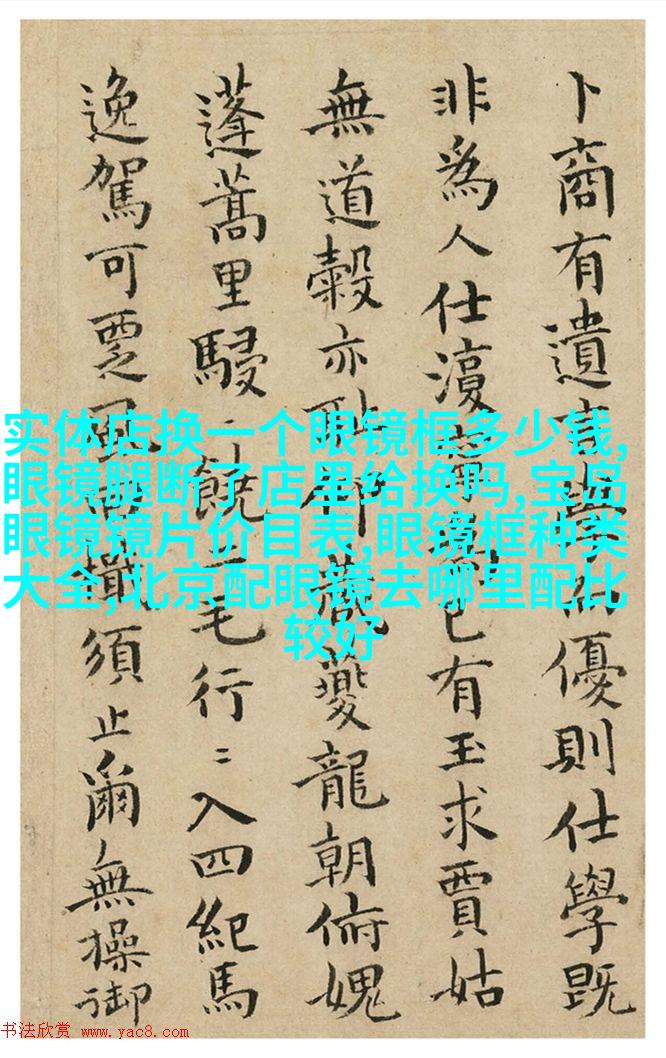 卜商有遺言學優則仕學既
非為人仕己有玉求賈姑
無道榖亦恥仰夔龍朝俯媿
蓬蒿里駸〻饒二毛行〻入四紀馬
逸駕可覂風須止爾無操御
实体店换一个眼镜框多少钱,
眼镜腿断了店里给换吗,宝岛
眼镜镜片价目表,眼镜框种类
大全,北京配眼镜去哪里配比
较好
书法欣赏 www.yac8.com